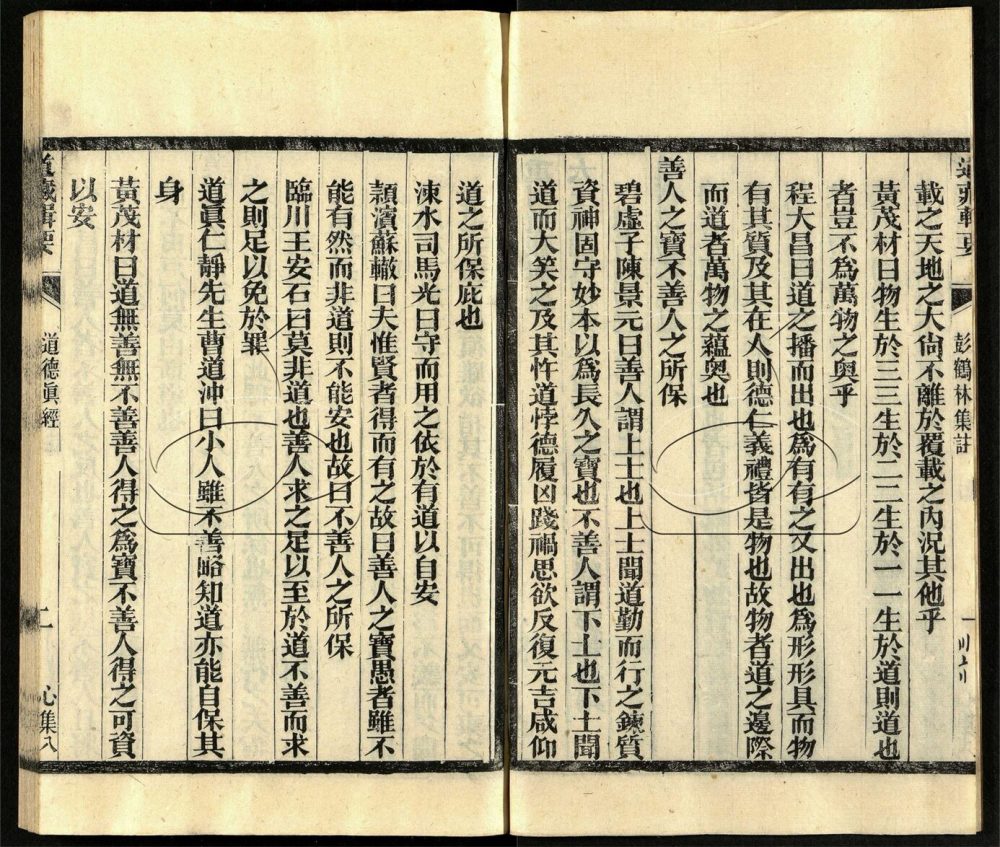 道藏輯要
彭鶴林集註
載之天地之大尙不離於覆載之內況其他乎
黃茂材曰物生於三三生於二二生於一一生於道則道也
者豈不爲萬物之奧乎
程大昌曰道之播而出也爲有有之又出也爲形形具而物
有其質及其在人則德仁義禮皆是物也故物者道之邊際
而道者萬物之蘊奧也
善人之寶不善人之所保
碧虛子陳景元曰善人謂上士也上士聞道勤而行之鍊質
資神固守妙本以爲長久之寶也不善人謂下士也下士聞
道而大笑之及其忤道悖德履凶踐禍思欲反復元吉咸仰
道之所保庇也
涑水司馬光曰守而用之依於有道以自安
潁濱蘇轍曰夫惟賢者得而有之故曰善人之寶愚者雖不
能有然而非道則不能安也故曰不善人之所保
臨川王安石曰莫非道也善人求之足以至於道不善而求
之則足以免於罪
道眞仁靜先生曹道沖曰小人雖不善略知道亦能自保其
身
黃茂材曰道無善無不善善人得之爲寶不善人得之可資
以安
道藏輯要
道德眞經
二
心集八